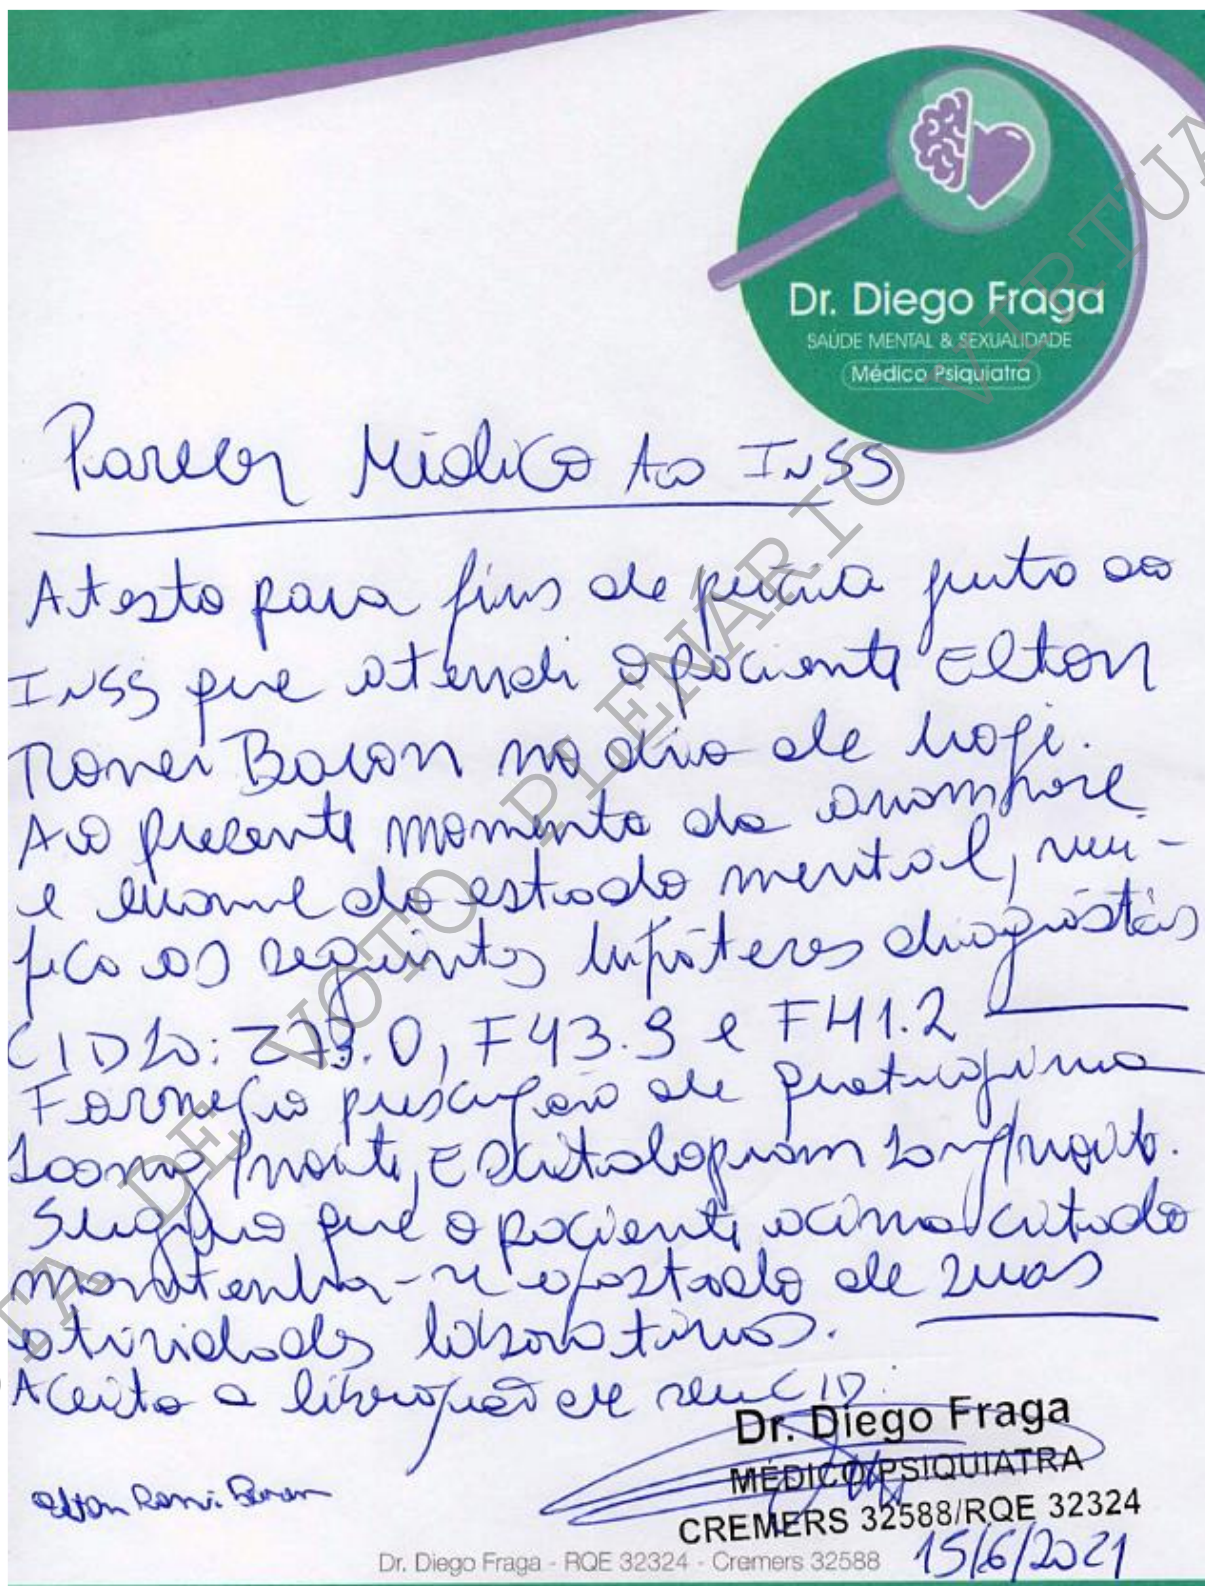 Dr. Diego Fraga
SAÚDE MENTAL & SEXUALIDADE
Médico Psiquiatra
Parecer Médico Ao INSS
Atesto para fins de perícia junto ao
INSS que atendi o paciente Elton
Ronei Baron no dia de hoje.
Ao presente momento da anamnese
e exame do estado mental, veri-
fico as seguintes hipóteses diagnósticas
CID10: Z73.0, F43.9 e F41.2
Forneço prescrição de quetiapina
100mg/noite, Escitalopram 10mg/noite.
Sugiro que o paciente acima citado
mantenha-se afastado de suas
atividades laborativas.
Aceito a liberação de seu CID.
Elton Ronei Baron
Dr. Diego Fraga
MÉDICO PSIQUIATRA
CREMERS 32588/RQE 32324
15/6/2021
Dr. Diego Fraga - RQE 32324 - Cremers 32588
DE VOTO PLENARIO VIRTUA